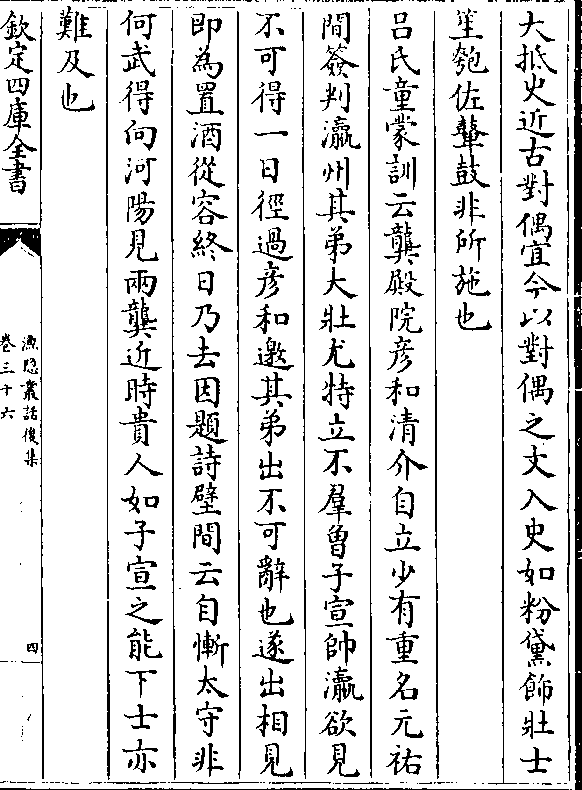 大抵史近古對偶宜今以對偶之文入史如粉黛飾壯士
笙匏佐鼙鼓非所施也
吕氏童蒙訓云龔殿院彦和清介自立少有重名元祐
間簽判瀛州其弟大壯尤特立不羣曾子宣帥瀛欲見
不可得一日徑過彦和邀其弟出不可辭也遂出相見
即為置酒從容終日乃去因題詩壁間云自慚太守非
何武得向河陽見兩龔近時貴人如子宣之能下士亦
難及也
欽定四庫全書
漁隠叢話後集
卷三十六
四